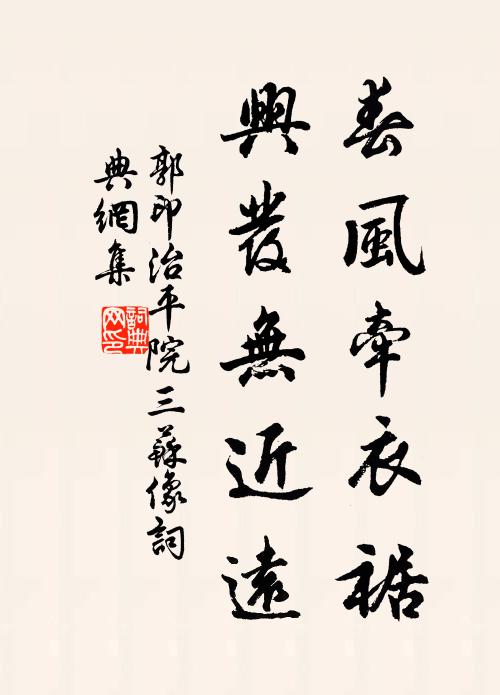 春風牽衣裾
興發無近遠
郭印治平院三蘇像詞
典網集
詞典网印